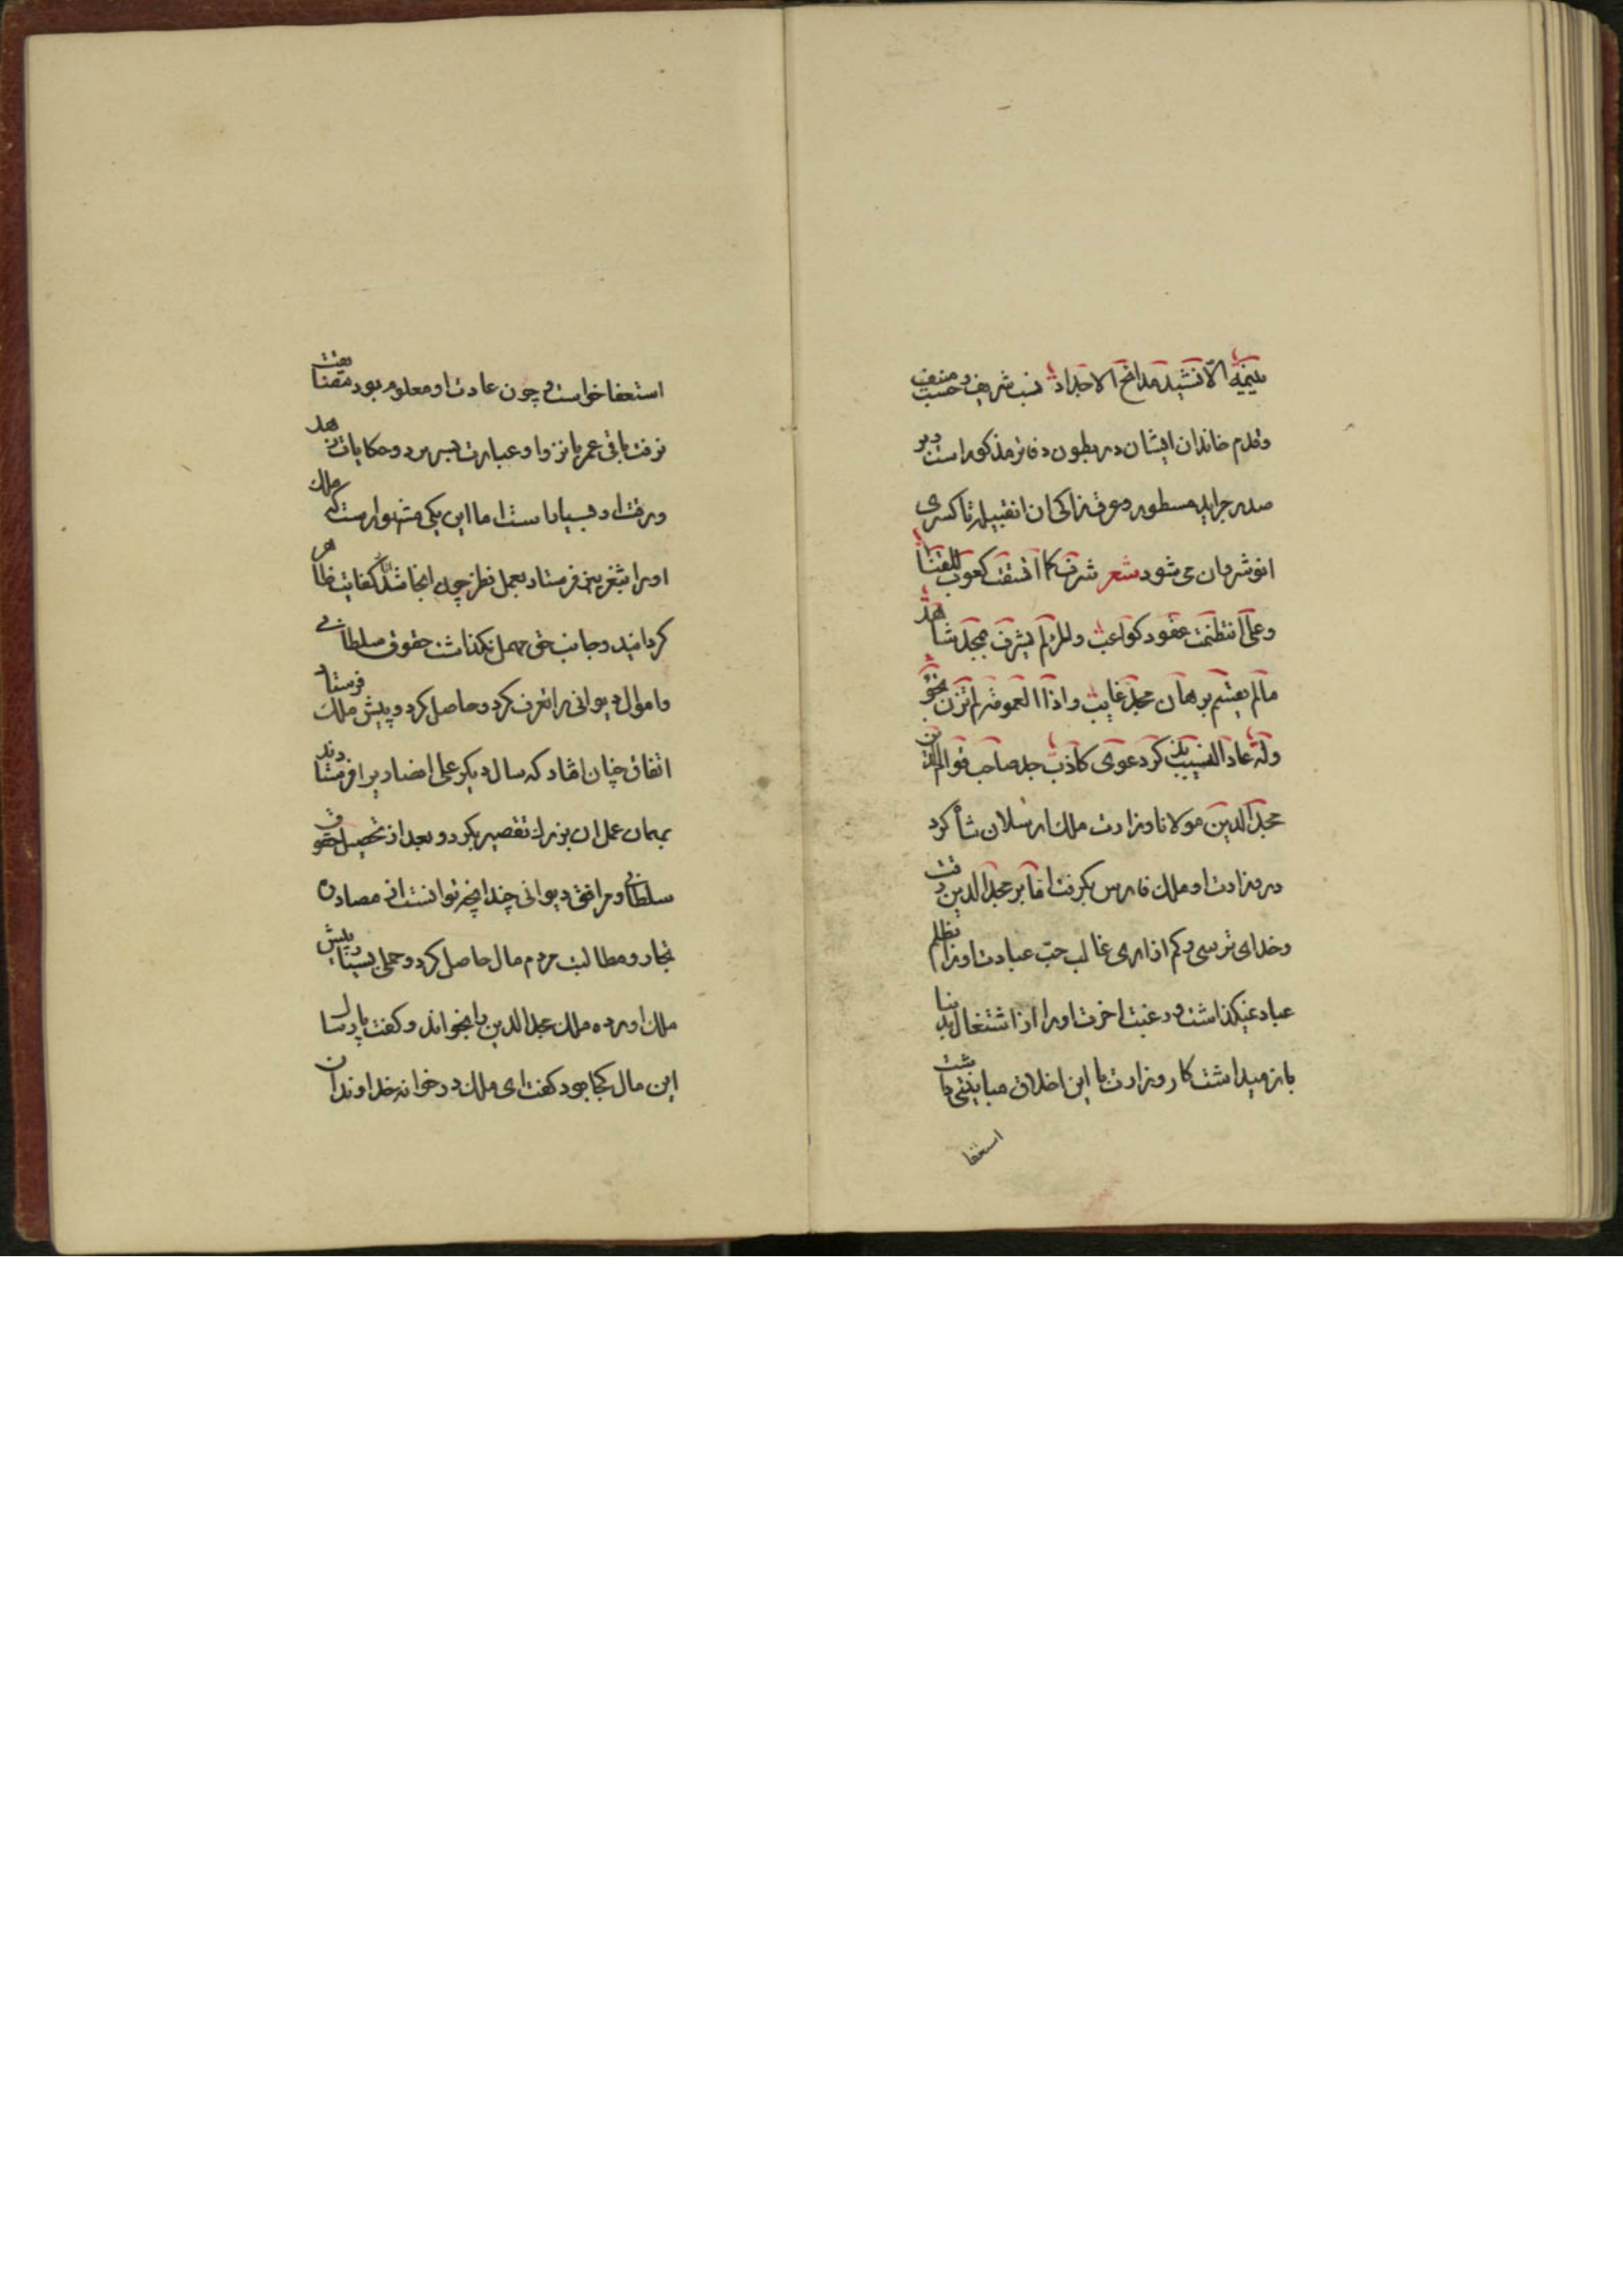 الا نشید مدایح الاجداد نسب شریف و حسب منیف
وقدم خاندان ایشان در بطون دفاتر مذکور است و بر
صدر جراید مسطور و عرق زاکی ان
انوشروان می شود شعر شرف کما کعوب القنا
وعلی انتظمت عقود کواعب وللرم بشرف مجد شاهد
مالم یقسم برهان مجد غایب واذا العمومة لم تزن بخؤ
ولة عاد النسیب دعوی کاذب جد صاحب قوام الدین
مجد الدین مولانا وزارت ملک ارسلان شاه کرد
در وزارت او ملک فارس بکرفت اما بر مجد الدین رقت
وخدای ترسی و کم ازاری غالب حب عبادت اورا بظلم
عباد نمیکذاشت و رغبت اخرت اورا از اشتغال بدنیا
باز میداشت کار وزارت با این اخلاق مباینتی داشت
استعفا
استعفا خواست و چون عادت او معلوم بود
نرفت باقی عمر بانزوا و عبادت بسر برد و حکایات زهد
ورقت او بسیار است اما این یکی مشهور است که ملک
اورا بثغر یمن فرستاد بعمل نظر چون انجا شد کفایت ظاهر
کردانید و جانب حق مهمل نکذاشت حقوق سلطانی
واموال دیوانی را تعرف کرد و حاصل کرد و پیش ملک فرستاد
اتفاق چنان افتاد که سال دیکر علی انصاریرا فرستادند
بهمان عمل ان بزرک تقصیر بکرد و بعد از تحصیل حقوق
سلطانی و مرافق دیوانی چندانچه توانست از مصادره
تجار و مطالبت مردم مال حاصل کرد و حملی پیش
ملک اورده ملک مجد الدین را بخواند و کفت پارسال
این مال کجا بود کفت ای ملک در خوانه خداوندان